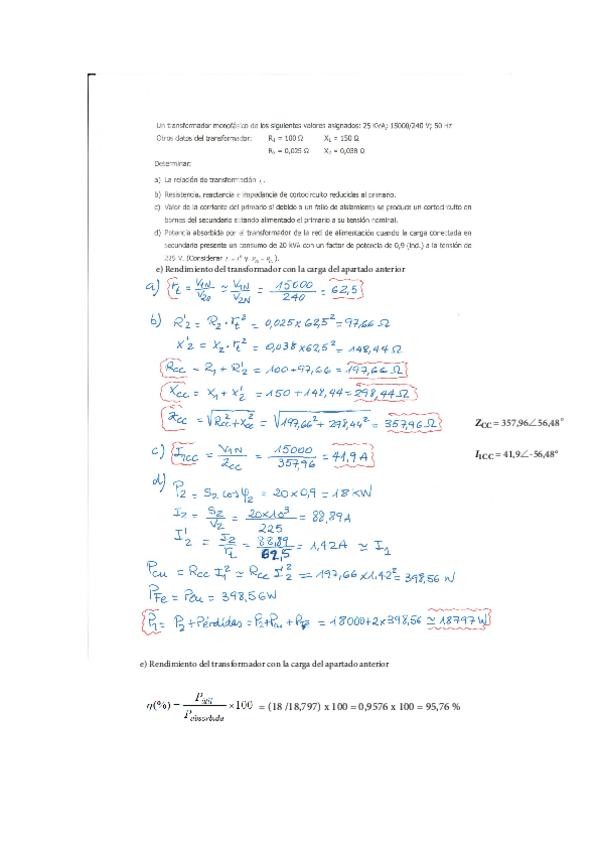 Un transformador monofásico de los siguientes valores asignados: 25 KVA; 15000/240 V; 50 Hz
Otros datos del transformador: R₁ = 100 Ω X₁ = 150 Ω
R₂ = 0,025 Ω X₂ = 0,038 Ω
Determinar:
a) La relación de transformación
b) Resistencia, reactancia e impedancia de cortocircuito reducidas al primario.
c) Valor de la corriente del primario si debido a un fallo de aislamiento se produce un cortocircuito en
bornes del secundario estando alimentado el primario a su tensión nominal.
d) Potencia absorbida por el transformador de la red de alimentación cuando la carga conectada en
secundario presente un consumo de 20 kVA con un factor de potencia de 0,9 (ind.) a la tensión de
225 V. (Considerar
e) Rendimiento del transformador con la carga del apartado anterior
a) rt = V1N/V20 ≃ V1N/V2N = 15000/240 = 62,5
b) R'2 = R2 · rt² = 0,025 x 62,5² = 97,66 Ω
X'2 = X2 · rt² = 0,038 x 62,5² = 148,44 Ω
Rcc = R1 + R'2 = 100 + 97,66 = 197,66 Ω
Xcc = X1 + X'2 = 150 + 148,44 = 298,44 Ω
Zcc = √(Rcc² + Xcc²) = √(197,66² + 298,44²) = 357,96 Ω
Z_CC = 357,96∠56,48°
c) I1cc = V1N/Zcc = 15000/357,96 = 41,9 A
I_1CC = 41,9∠-56,48°
d) P2 = S2 cos φ2 = 20 x 0,9 = 18 kW
I2 = S2/V2 = 20x10³/225 = 88,89 A
I'2 = I2/rt = 88,89/62,5 = 1,42 A ≃ I1
Pcu = Rcc I1² ≃ Rcc I'2² = 197,66 x 1,42² = 398,56 W
PFe = Pcu = 398,56 W
P1 = P2 + Pérdidas = P2 + Pcu + PFe = 18000 + 2 x 398,56 ≃ 18797 W
e) Rendimiento del transformador con la carga del apartado anterior
η(%) = P útil / P absorbida × 100 = (18 /18,797) x 100 = 0,9576 x 100 = 95,76 %